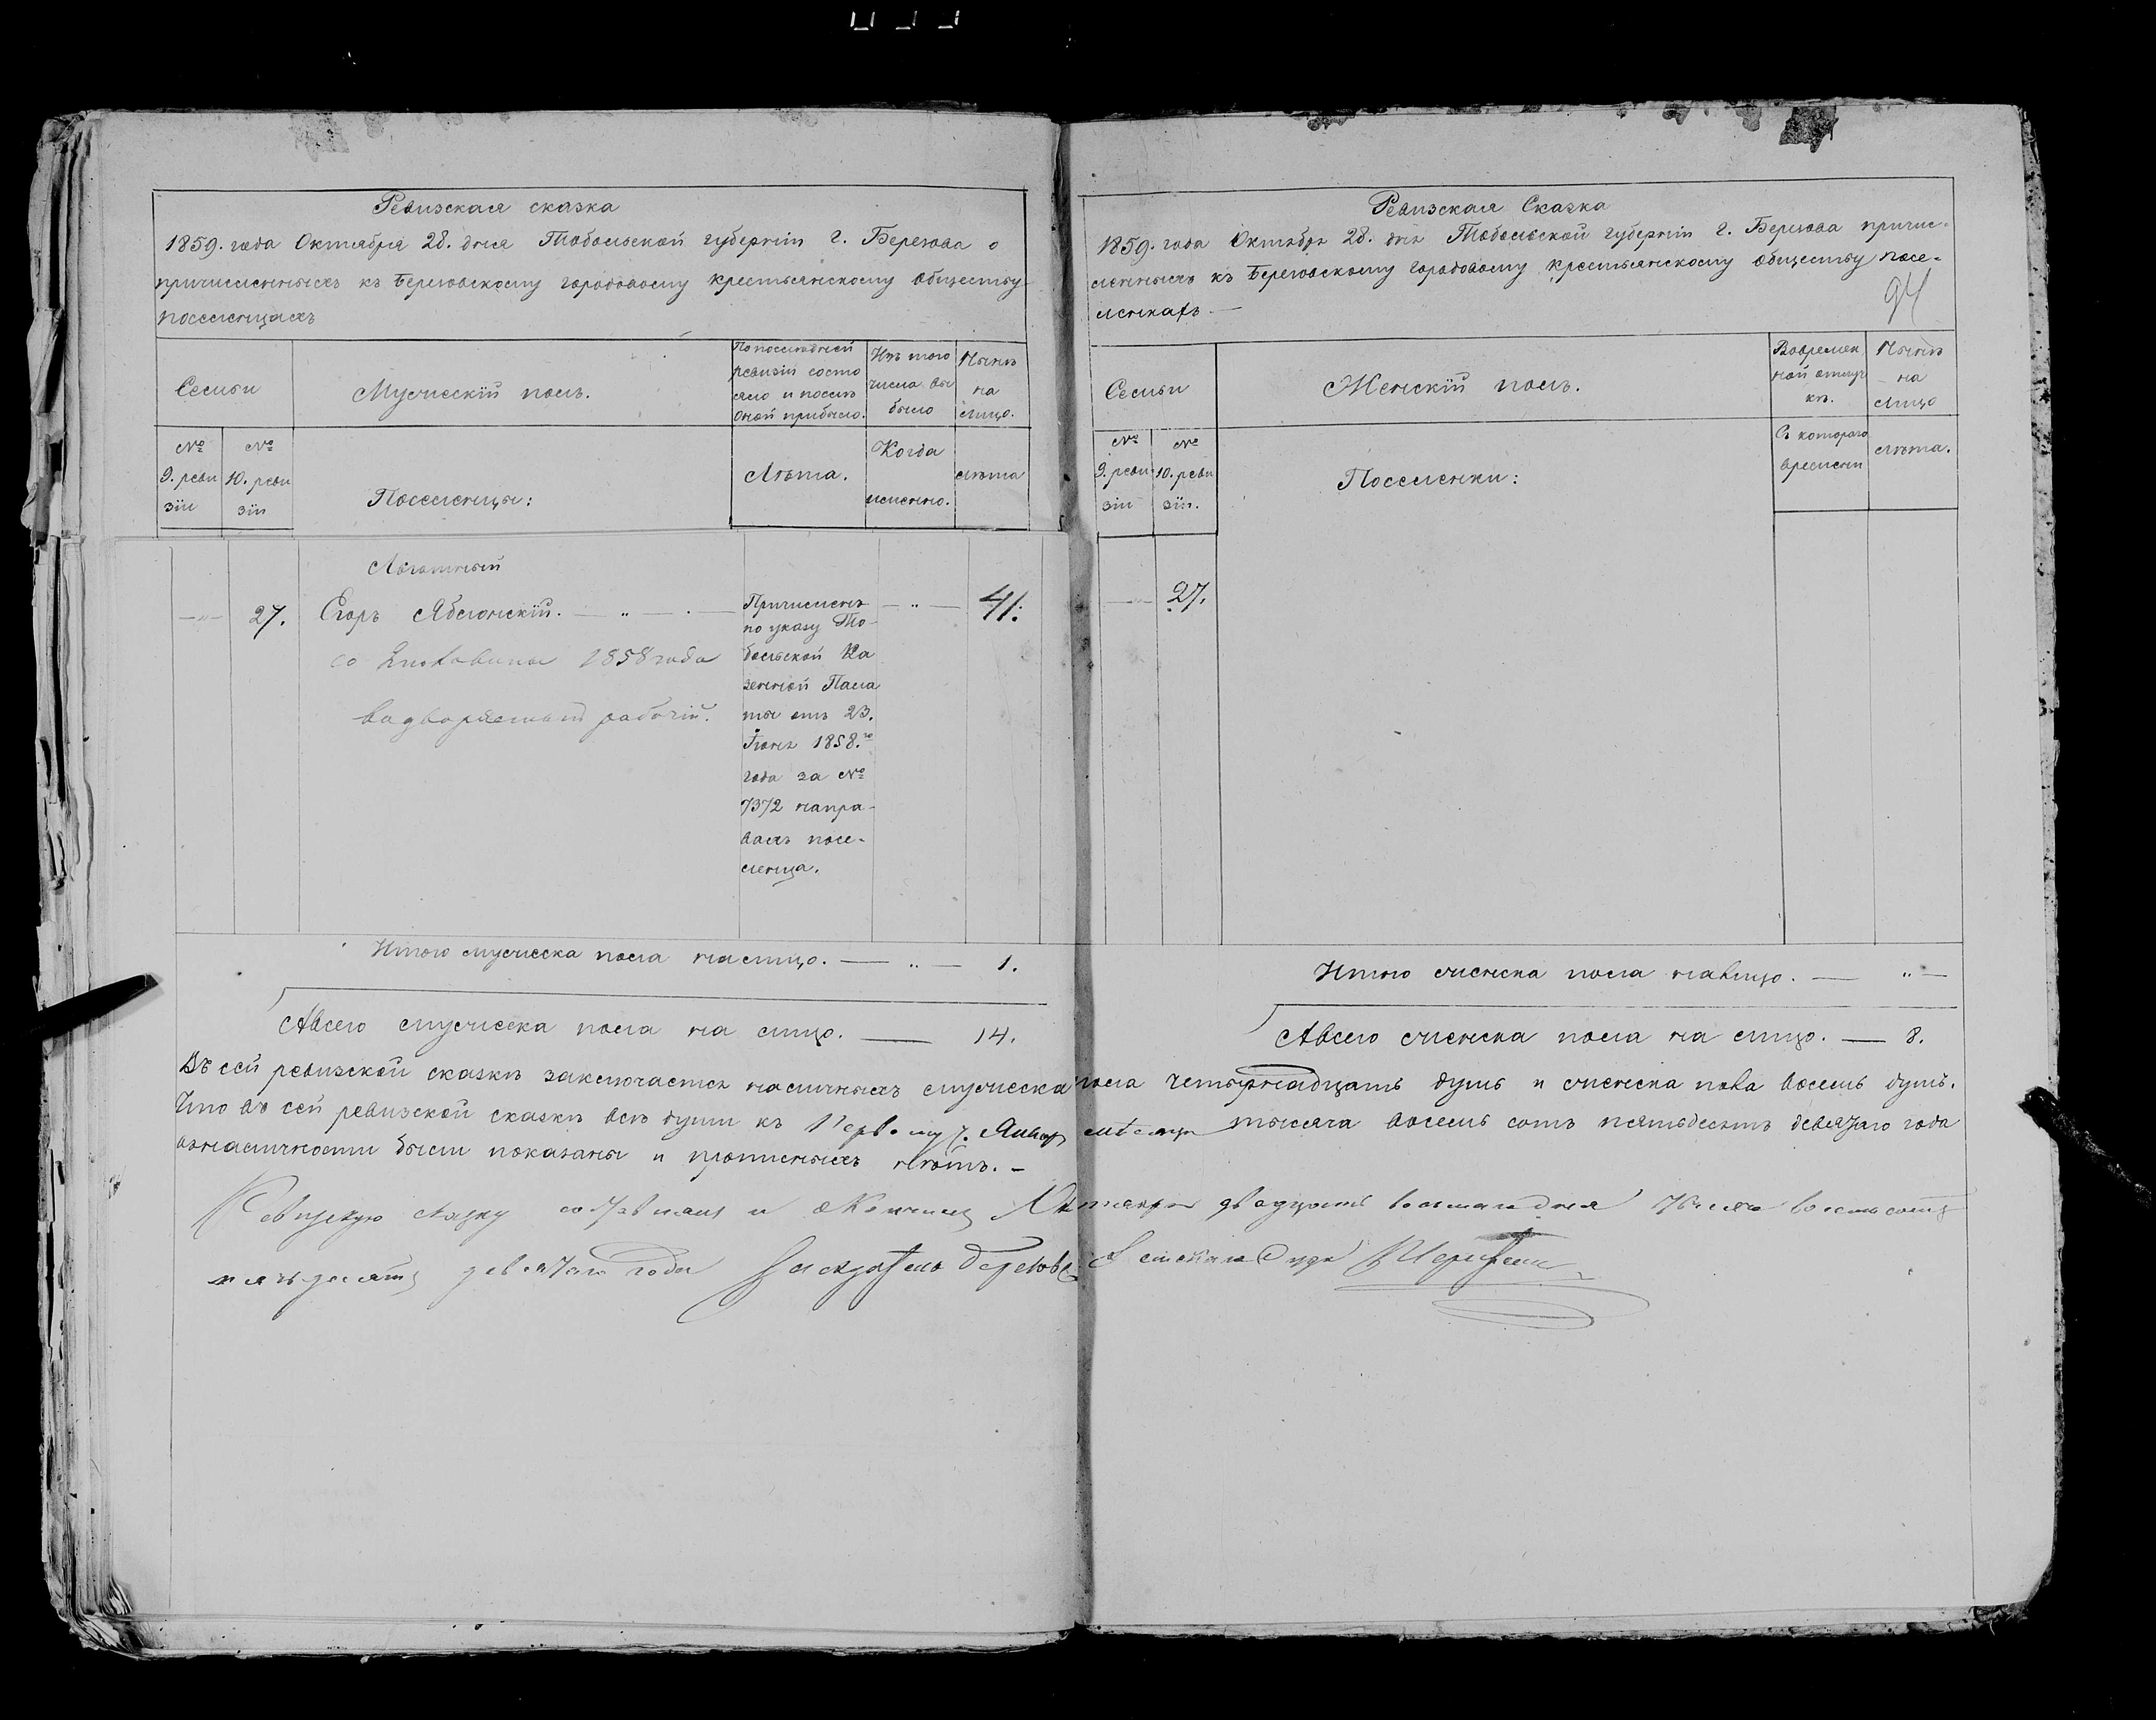 Ревизская сказка
1859. года Октября 28. дня Тобольской губерніи г. Березова о
причисленныхъ къ Березовскому городовому крестьянскому обществу
поселенцахъ
Семьи
Мужескій полъ.
По последней
ревизіи состо
яло и послѣ
оной прибыло.
Изъ того
числа вы
было
Нынѣ
на
лицо.
№
9. реви
зіи
№
10. реви
зіи
Поселенцы:
Лѣта.
Когда
именно.
лѣта
27.
Егоръ Яблонскій.
1858 года
рабочій.
Причисленъ
по указу То-
больской Ка
зенной Пала
ты отъ 23.
Іюня 1858.го
года за №
7372 напра-
вахъ посе-
ленца.
41.
Итого мужеска пола налицо. — „ — 1.
А всего мужеска пола на лицо. — 14.
Ревизская Сказка
1859. года Октября 28. дня Тобольской губерніи г. Березова причис-
ленныхъ къ Березовскому городовому крестьянскому обществу посе-
ленкахъ. —
94
Семьи
Женскій полъ.
Во времен
ной отлуч
кѣ.
Нынѣ
на
лицо
№
9. реви
зіи
№
10. реви
зіи.
Поселенки:
Съ котораго
времени
лѣта.
27.
Итого женска пола налицо. — „ —
А всего женска пола на лицо. — 8.
Въ сей ревизской сказкѣ заключается наличныхъ мужеска пола четырнадцать душъ и женска пола восемь душъ.
Что въ сей ревизской сказкѣ всѣ души къ Первому ч. Января мѣсяца тысяча восемь сотъ пятьдесятъ девятаго года
вналичности были показаны и прописныхъ нѣтъ. –
Ревизскую сказку составилъ и окончилъ Октября двадцать восьмаго дня тысяча восемьсотъ
пятьдесятъ девятаго года Засѣдатель Березовс Земскаго Суда